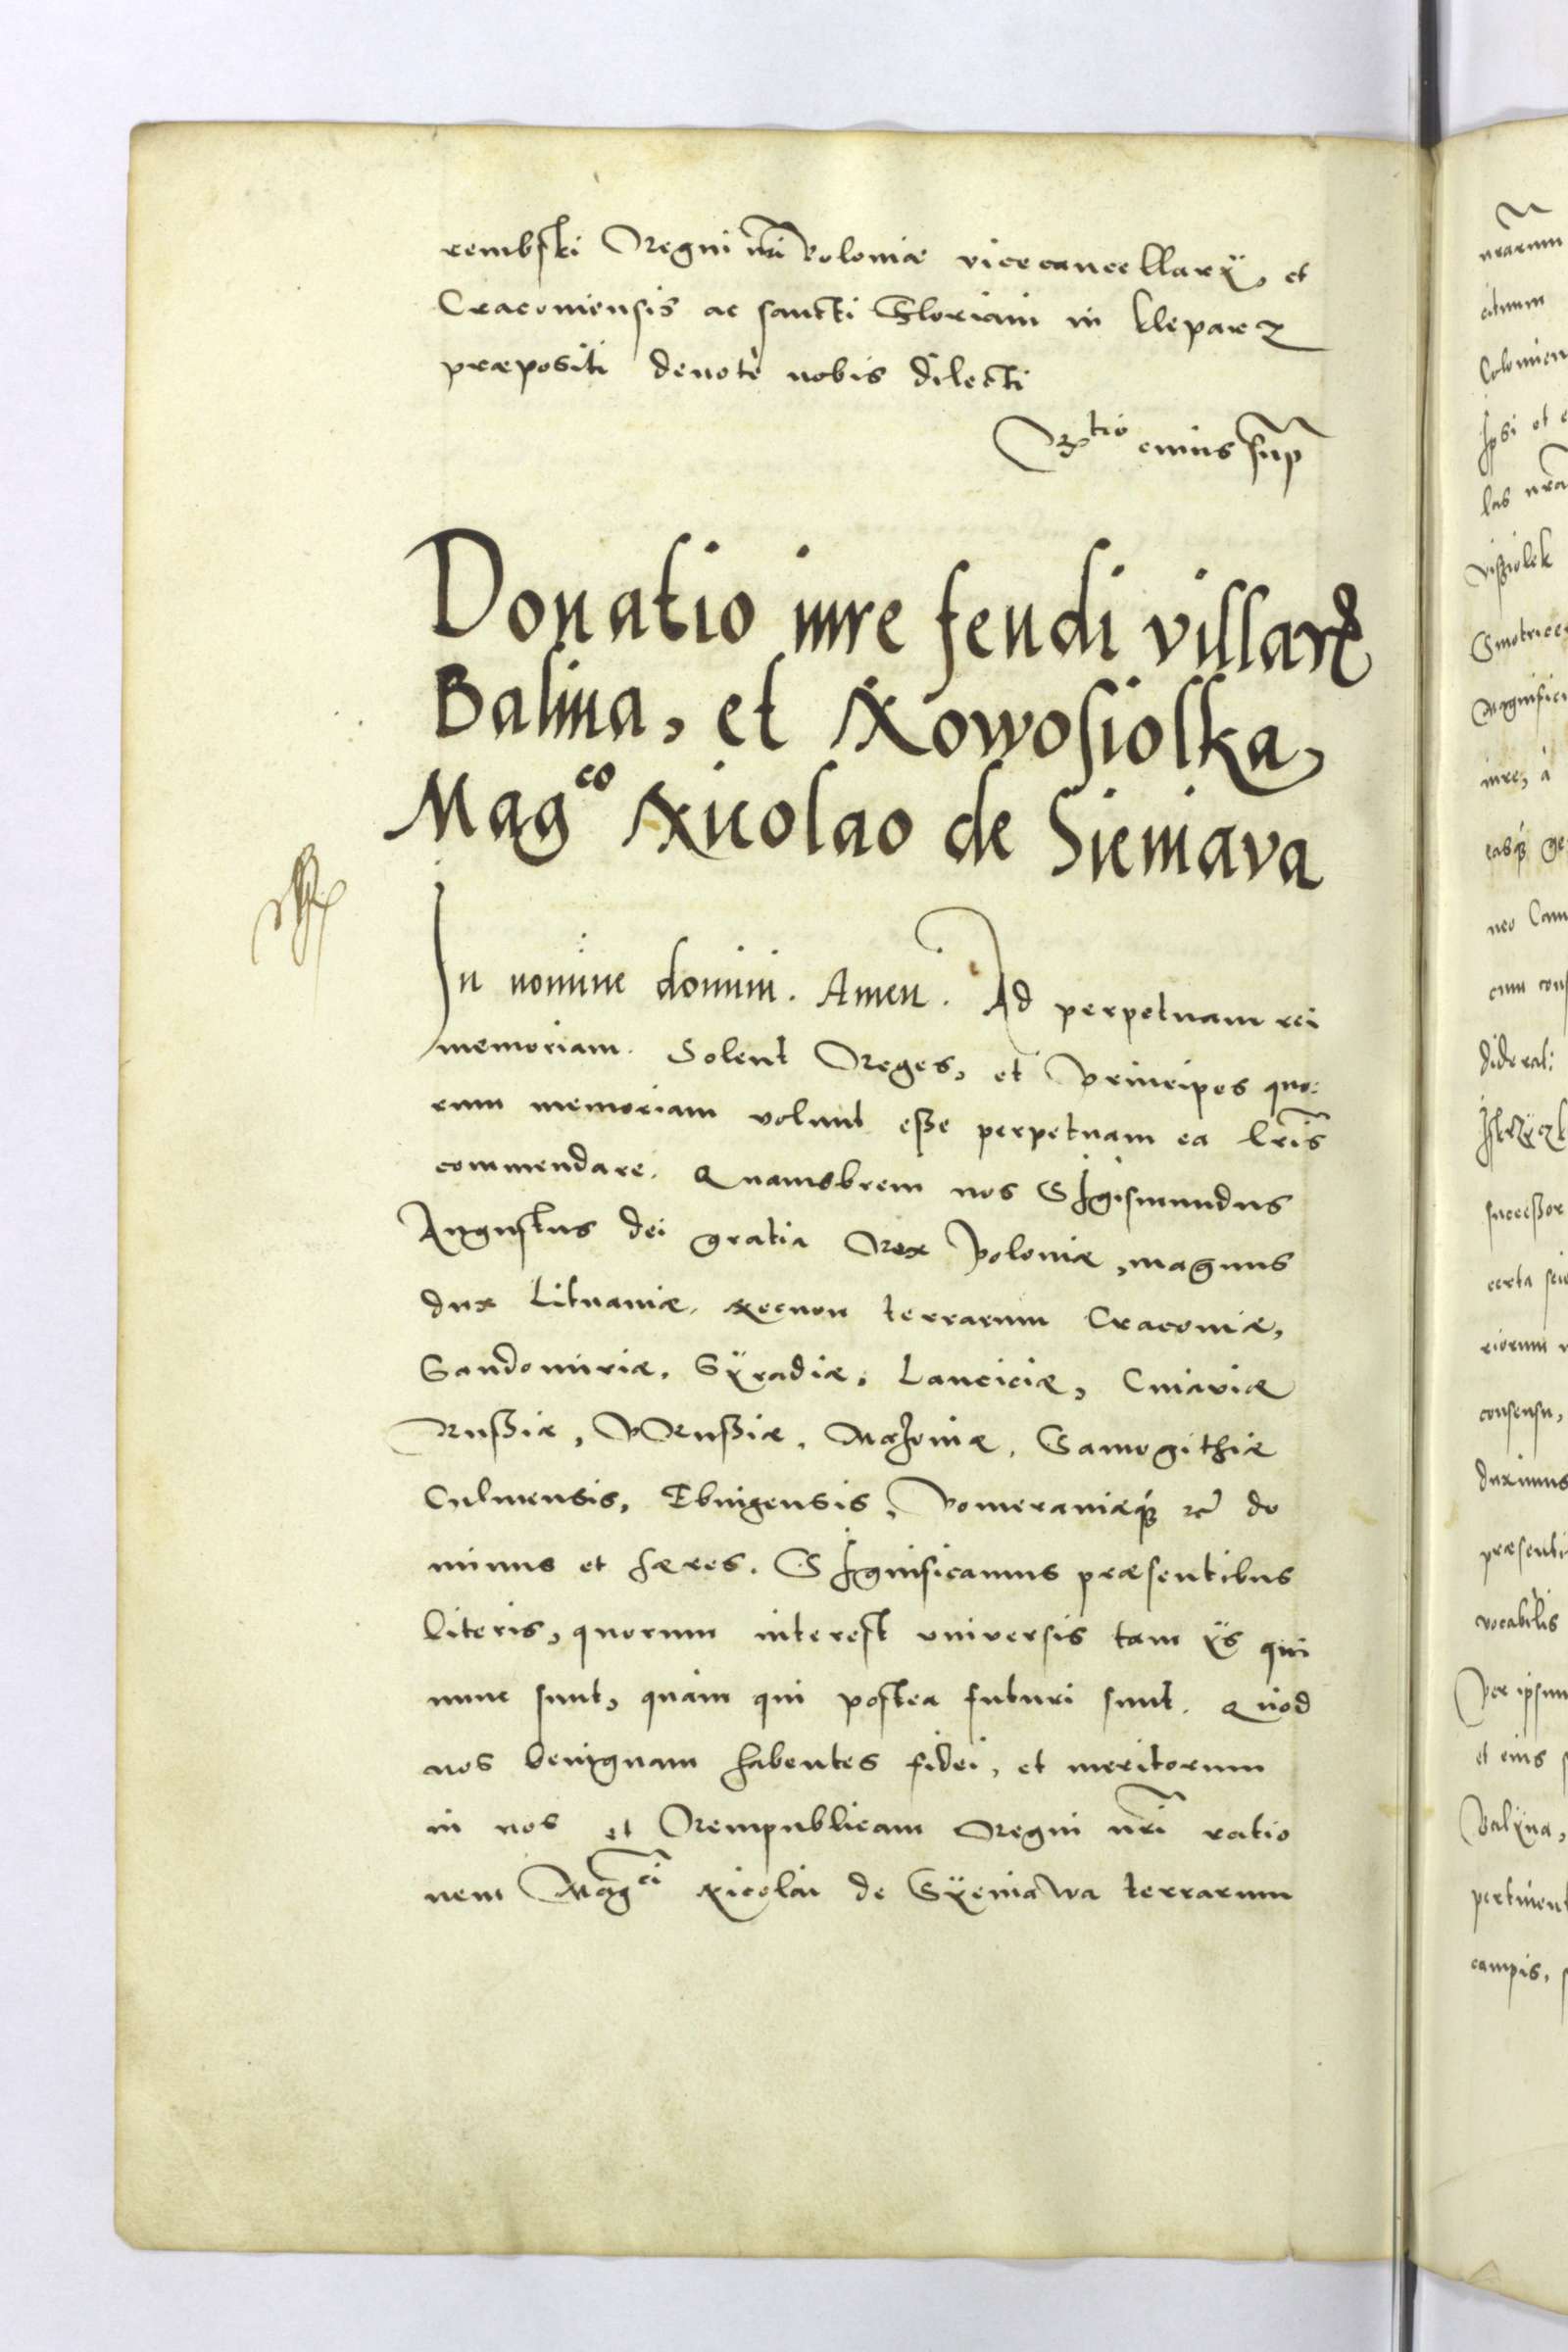 rembski Regni nri Poloniæ vicecancellarÿ, et
Cracoviensis ac sancti Floriani in Kleparz
præpositi devotè nobis dilecti
Rtio cuius sup
Donatio iure feudi villarꝝ
Balina, et Nowosiolka,
Magco Nicolao de Sieniava
In nomine domini. Amen. Ad perpetuam rei
memoriam. Solent Reges, et Principes quo:
rum memoriam volunt eße perpetuam ea lris
commendare. Quamobrem nos Sigismundus
Augustus dei gratia Rex Poloniæ, magnus
dux Lituaniæ, Necnon terrarum Cracoviæ,
Sandomiriæ, Sÿradiæ, Lanciciæ, Cuiaviæ
Rußiæ, Prußiæ, Masoviæ, Samogithiæ
Culmensis, Elbingensis, Pomeraniæqꝫ etc do
minus et hæres. Significamus præsentibus
literis, quorum interest universis tam ÿs qui
nunc sunt, quàm qui postea futuri sunt. Quod
nos benignam habentes fidei, et meritorum
in nos et Rempublicam Regni nri ratio
nem Magci Nicolai de Sÿeniawa terrarum
nrarum
citum
Colomien
Ipsi et e
las nra
Smotricen
Magnifici
iure, a
easqꝫ ge
neo Cam
cum cons
dideral:
succeßor
certa scie
riorum n
consensu,
duximus
præsenti
vocabilis
Per ipsum
et eius s
Balÿna,
pertinent
campis, s